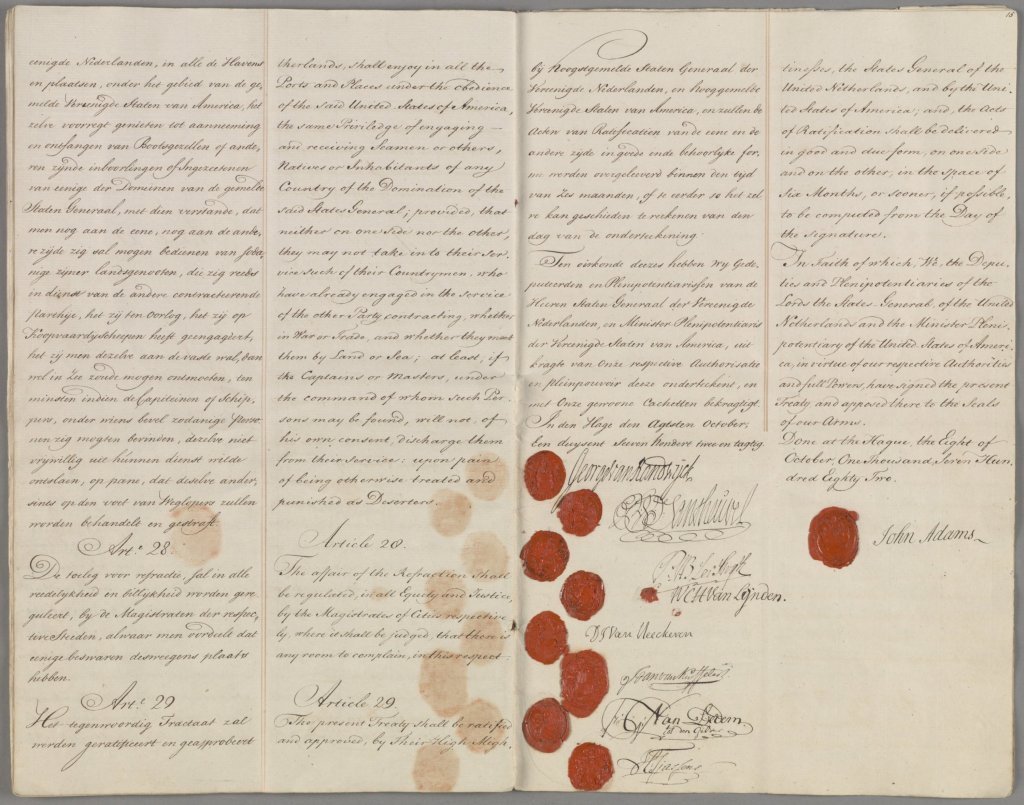 eenigde Nederlanden, in alle de Havens
en plaatsen, onder het gebied van de ge,
melde Verenigde Staten van America, het
zelve voorregt genieten tot aanneeming
en ontfangen van Bootsgezellen of ande,
ren zynde inboorlingen of Ingezeetenen
van eenige der Domeinen van de gemelte
Staten Generaal, met dien verstande, dat
men nog aan de eene, nog aan de ande,
re zijde zig sal mogen bedienen van soda,
nige zijner landsgenooten, die zig reeds
in dienst van de andere contracteerende
partye, het zij ten oorlog, het zij op
Koopvaardyscheepen heeft geengageert,
het zij men dezelve aan de vaste wal, dan
wel in Zee zoude mogen ontmoeten, ten
minsten indien de Capiteinen of Schip,
pers, onder wiens bevel zodanige Perso
nen zig mogten bevinden, dezelve niet
vrijwillig uit hunnen dienst wilde
ontslaen, op pane, dat deselve ander,
sints op den voet van Weglopers zullen
werden behandelt en gestraft.
Art.: 28.
De toeleg voor refractie, sal in alle
reedelykheid en billykheid worden gere
guleert, by de Magistraten der respec,
teve Steeden, alwaar men oordeelt dat
eenige beswaren desweegens plaats
hebben.
Art.: 29
Het tegenwoordig Tractaat zal
werden geratificeert en geapprobeert
therlands, shall enjoy in all the
Ports and Places under the obedience
of the said United States of America,
the same Priviledge of engaging
and receiving Seamen or others,
Natives or Inhabitants of any
Country of the Domination of the
said States General; provided, that
neither on one Side nor the other,
they may not take into their Ser
vice such of their Countrymen, who
have already engaged in the Service
of the other Party contracting, whether
in War or Trade, and whether they meet
them by Land or Sea; at least, if
the Captains or Masters, under
the command of whom such Per
sons may be found, will not, of
his own consent, discharge them
from their Service; upon pain
of being otherwise treated and
punished as Deserters.
Article 28.
The affair of the Refraction shall
be regulated, in all Equity and Justice,
by the Magistrates of Cities respective
ly, where it shall be judged, that there is
any room to complain, in this respect.
Article 29.
The present Treaty shall be ratified
and approved, by Their High Migh,
15
bij Hoogstgemelde Staten Generaal der
Verenigde Nederlanden, en Hooggemelte
Verenigde Staten van America, en zullen de
Acten van Ratificatien van de eene en de
andere zijde in goede ende behoorlyke for,
me werden overgeleverd binnen den tijd
van Zes maanden, of te eerder zo het zel
ve kan geschieden te rekenen van den
dag van de onderteekening.
Ten oirkonde deezes hebben Wy Gede,
puteerden en Plenipotentiarissen van de
Heeren Staten Generaal der Vereenigde
Nederlanden, en Minister Plenipotentiaris
der Verenigde Staten van America, uit
kragte van Onze respective Authorisatie
en pleinpouvoir deeze onderteekent, en
met Onze gewoone Cachetten bekragtigt.
In den Hage den Agtsten October,
Een duysent Seeven Hondert twee en tagtig.
George van Randwijck
WCH Van Lynden.
Van
tot den
tinesses, the States General of the
United Netherlands, and by the Uni,
ted States of America; and, the Acts
of Ratification shall be delivered
in good and due form, on one Side
and on the other, in the Space of
Six Months, or sooner, if possible,
to be computed from the Day of
the Signature.
In Faith of which, We, the Depu,
ties and Plenipotentiaries of the
Lords the States General, of the United
Netherlands and the Minister Pleni,
potentiary of the United States of Ameri,
ca, in virtue of our respective Authorities
and full Powers, have signed the present
Treaty and apposed thereto the Seals
of our Arms.
Done at the Hague, the Eight of
October, One thousand, Seven Hun,
dred Eighty Two.
John Adams